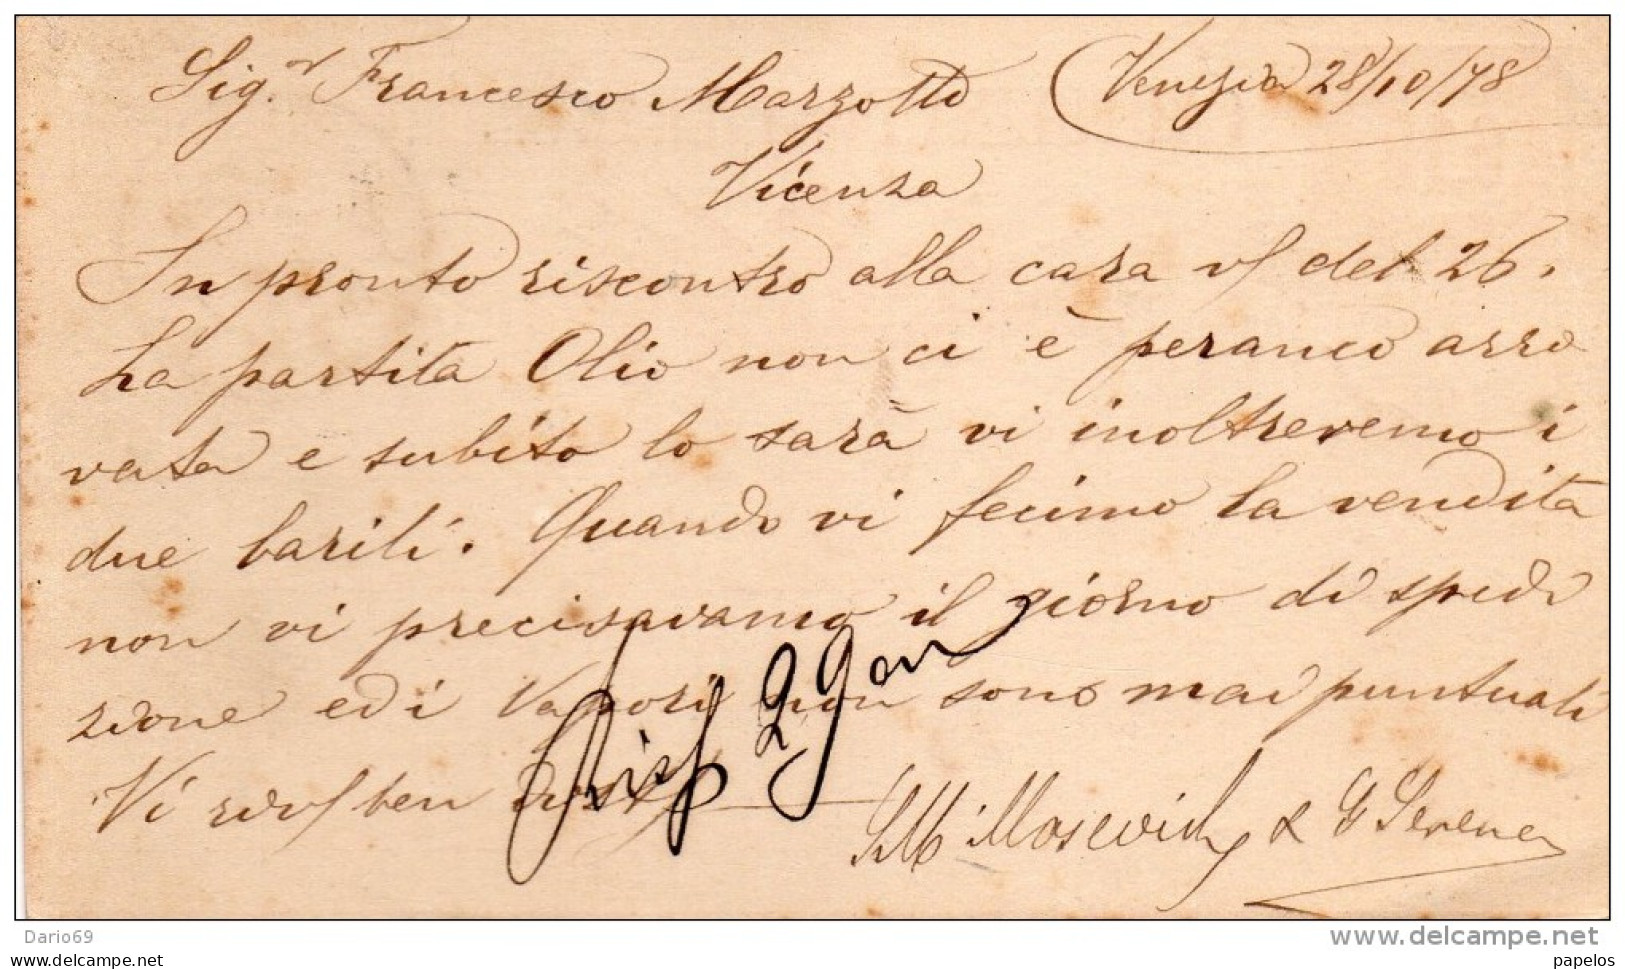 Sig.r Francesco Marzotto Venezia 28/10/78
Vicenza
In pronto riscontro alla cara v/ del 26.
La partita Olio non ci è peranco arro
vata e subito lo sarà vi inoltreremo i
due barili. Quando vi fecimo la vendita
non vi precisavamo il giorno di spedi
zione ed i Vapori non sono mai puntuali
Vi riv/ ben
Risp 29
& G Serena
Dario69
www.delcampe.net
papelos